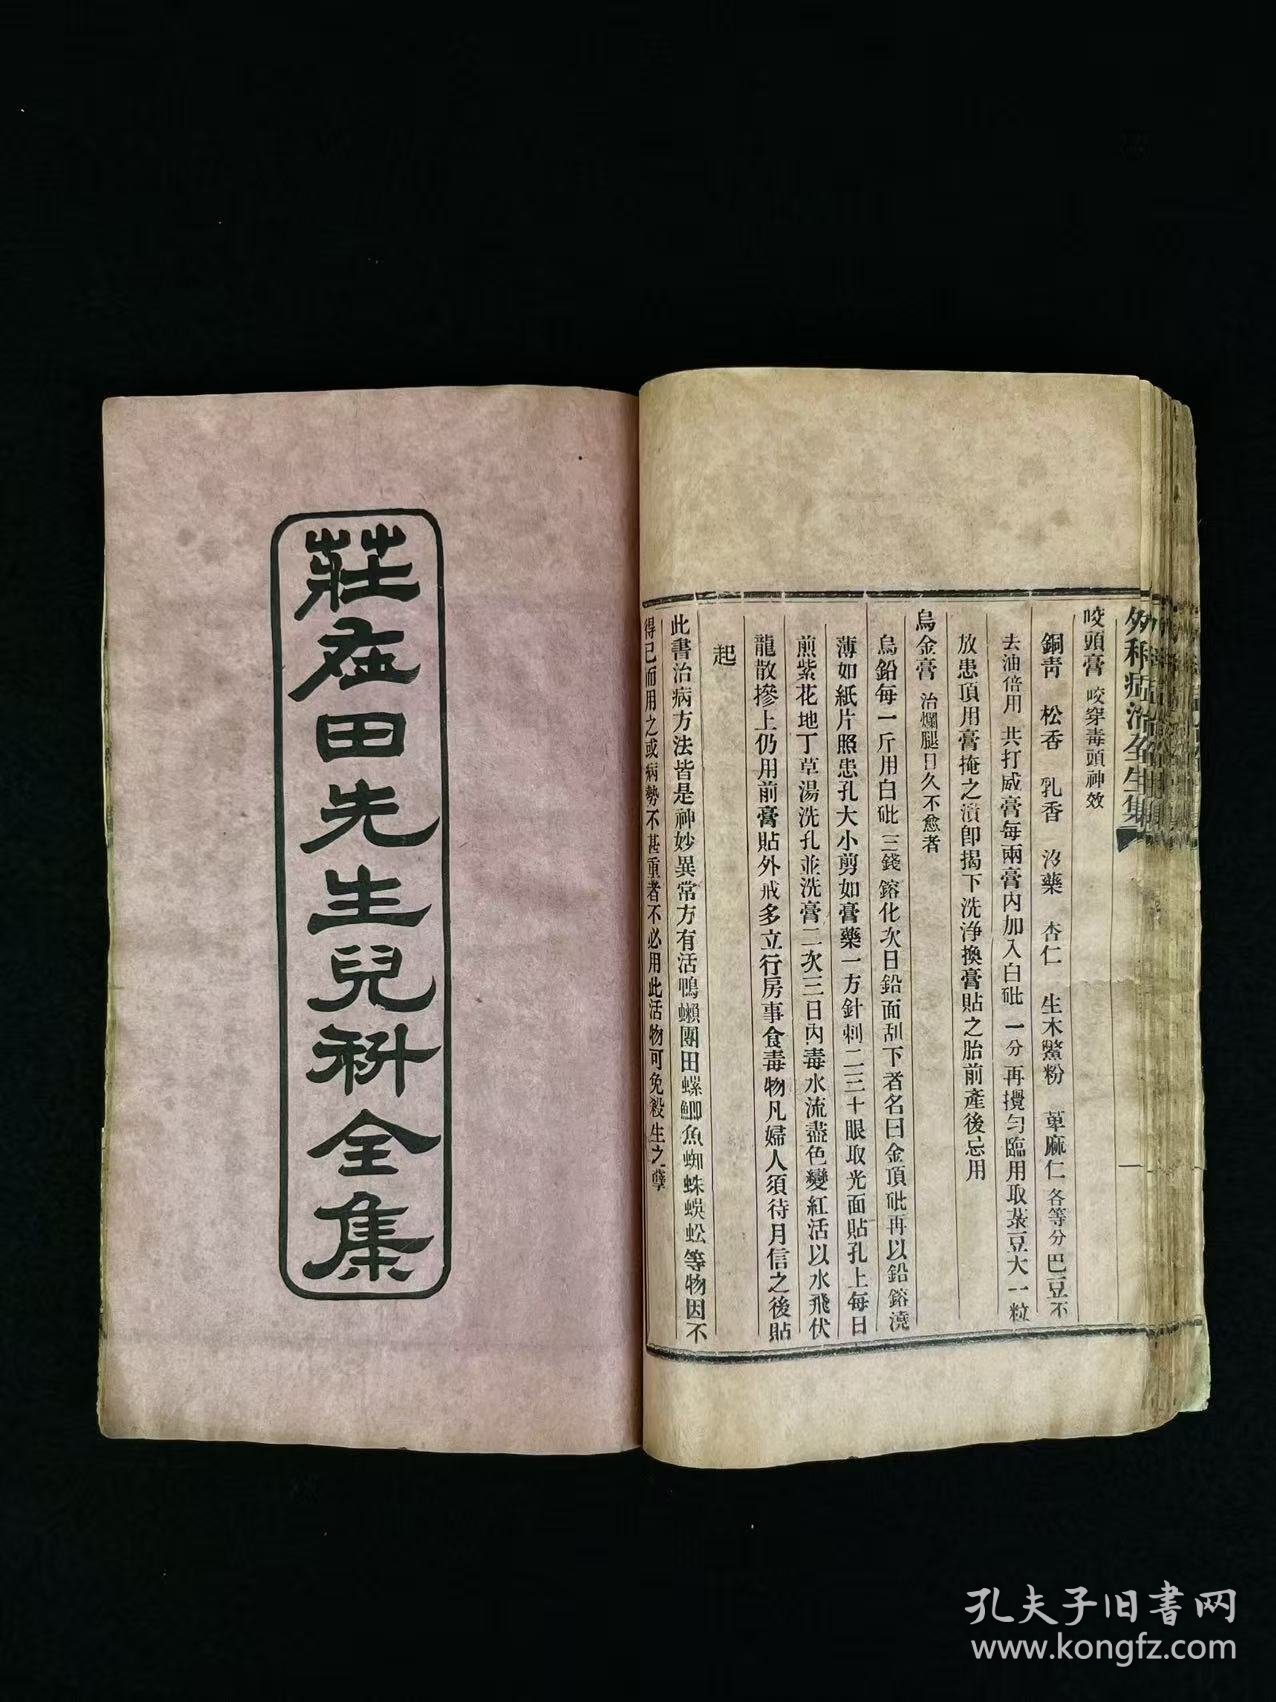 外科症治全生集
咬頭膏 咬穿毒頭神效
銅靑 松香 乳香 沒藥 杏仁 生木鱉粉 萆麻仁 各等分 巴豆不
去油倍用 共打成膏每兩膏內加入白砒一分再攪勻臨用取菉豆大一粒
放患頂用膏掩之潰卽揭下洗淨換膏貼之胎前產後忌用
烏金膏 治爛腿日久不愈者
烏鉛每一斤用白砒三錢鎔化次日鉛面刮下者名曰金頂砒再以鉛鎔澆
薄如紙片照患孔大小剪如膏藥一方針刺二三十眼取光面貼孔上每日
煎紫花地丁草湯洗孔並洗膏二次三日內毒水流盡色變紅活以水飛伏
龍散摻上仍用前膏貼外戒多立行房事食毒物凡婦人須待月信之後貼
起
此書治病方法皆是神妙異常方有活鴨蠏團田螺鯽魚蜘蛛蜈蚣等物因不
得已而用之或病勢不甚重者不必用此活物可免殺生之孽
莊在田先生兒科全集
孔夫子旧書网
www.kongfz.com